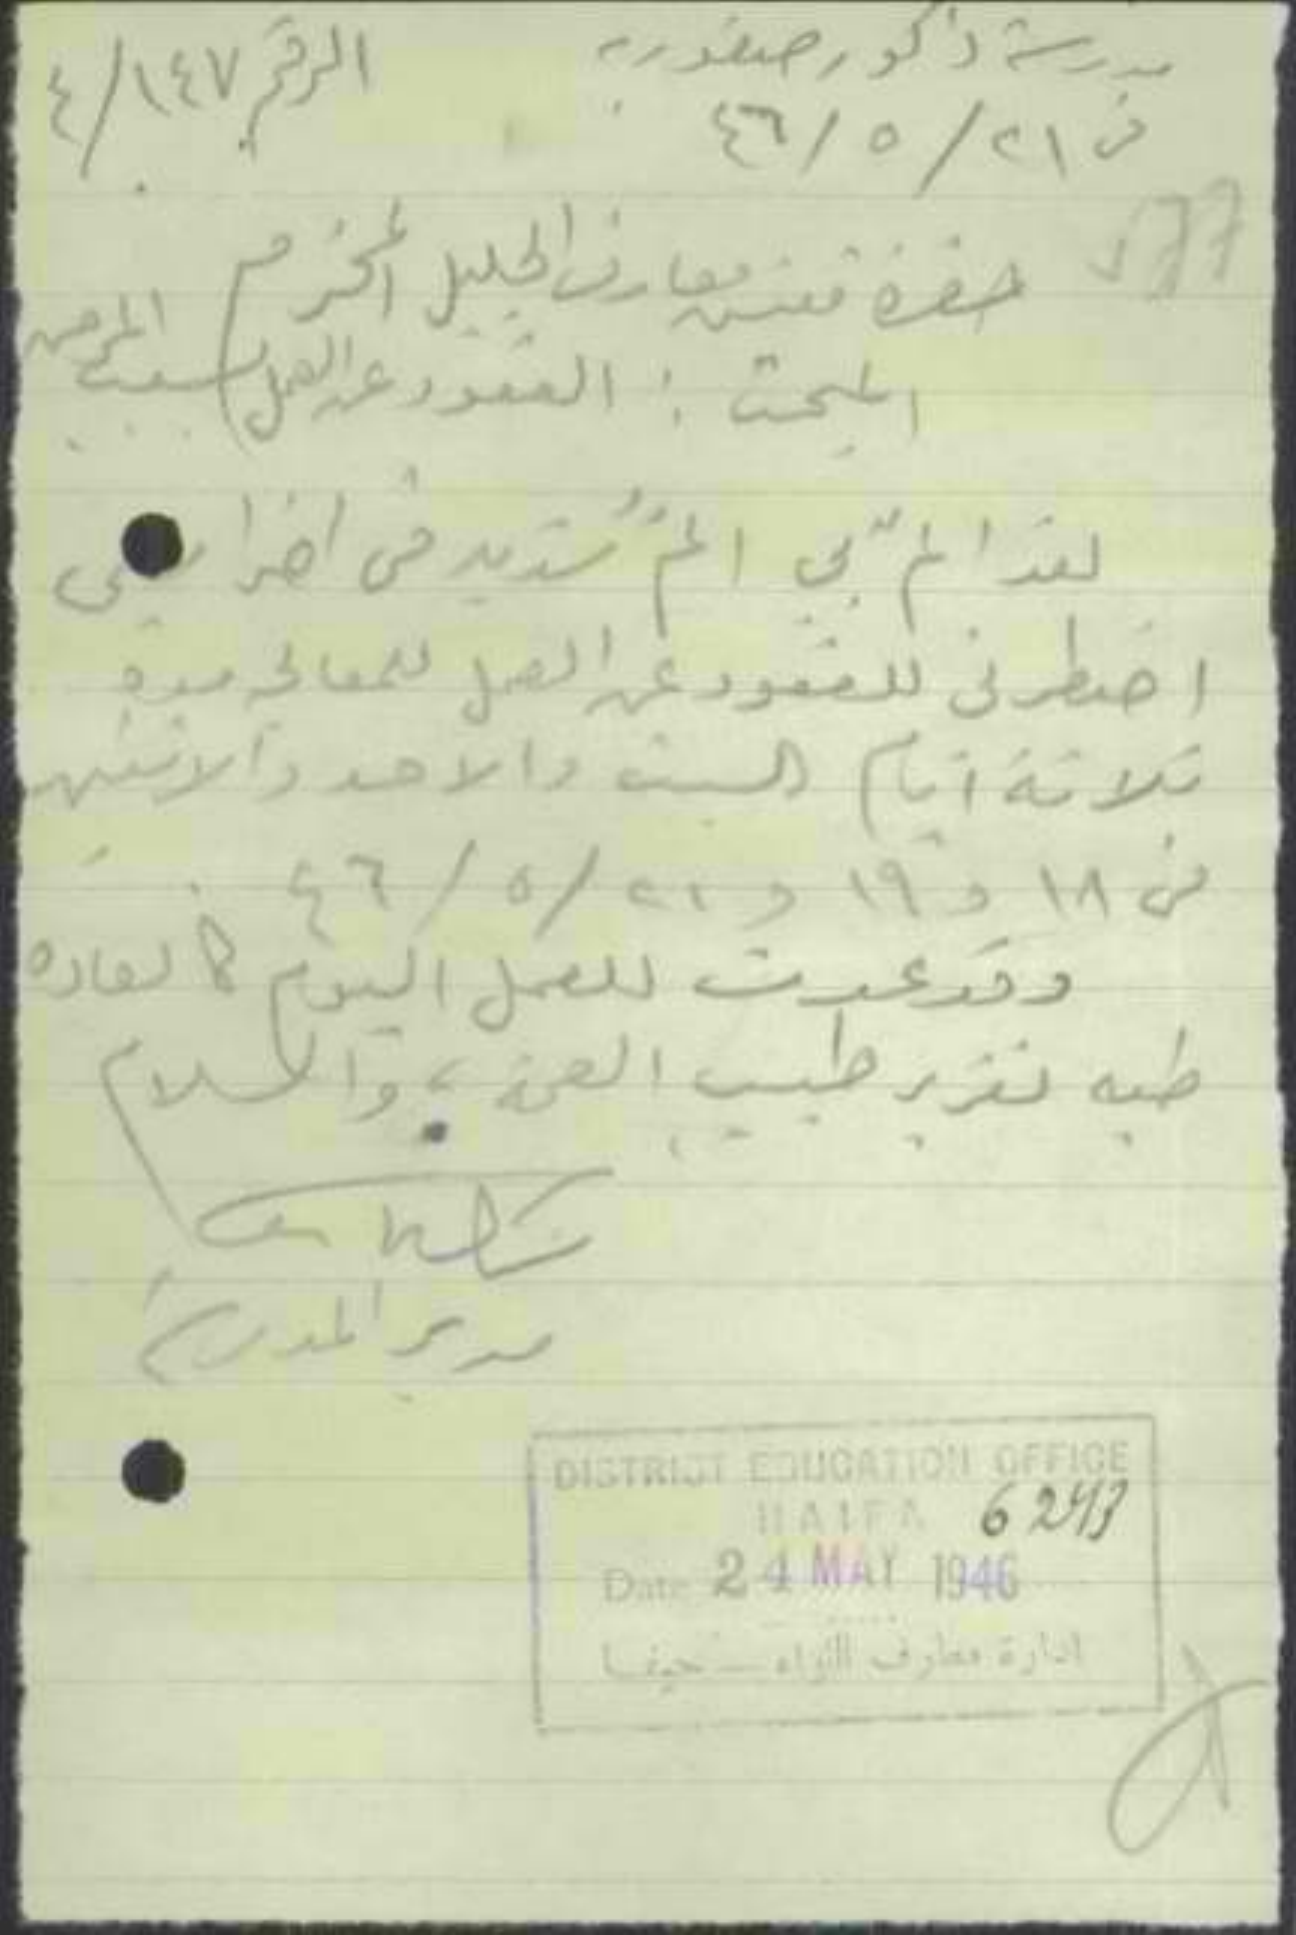 مدرسة ذكور صفوريه
الرقم ١٤٧/٤
في ٢١/٥/٤٦
حضرة مفتش معارف الجليل المحترم
المبحث : القعود عن العمل بسبب المرض
لقد المّ بي المٌ شديد في اضراسي
اضطرني للقعود عن العمل للمعالجه مدة
ثلاثة أيام السبت والاحد والاثنين
في ١٨ و ١٩ و ٢٠/٥/٤٦
وقد عدت للعمل اليوم كالعاده
طيه تقرير طبيب الصحة ، والسلام
مدير المدرسة
DISTRICT EDUCATION OFFICE
HAIFA 6243
Date 24 MAY 1946
ادارة معارف اللواء – حيفا